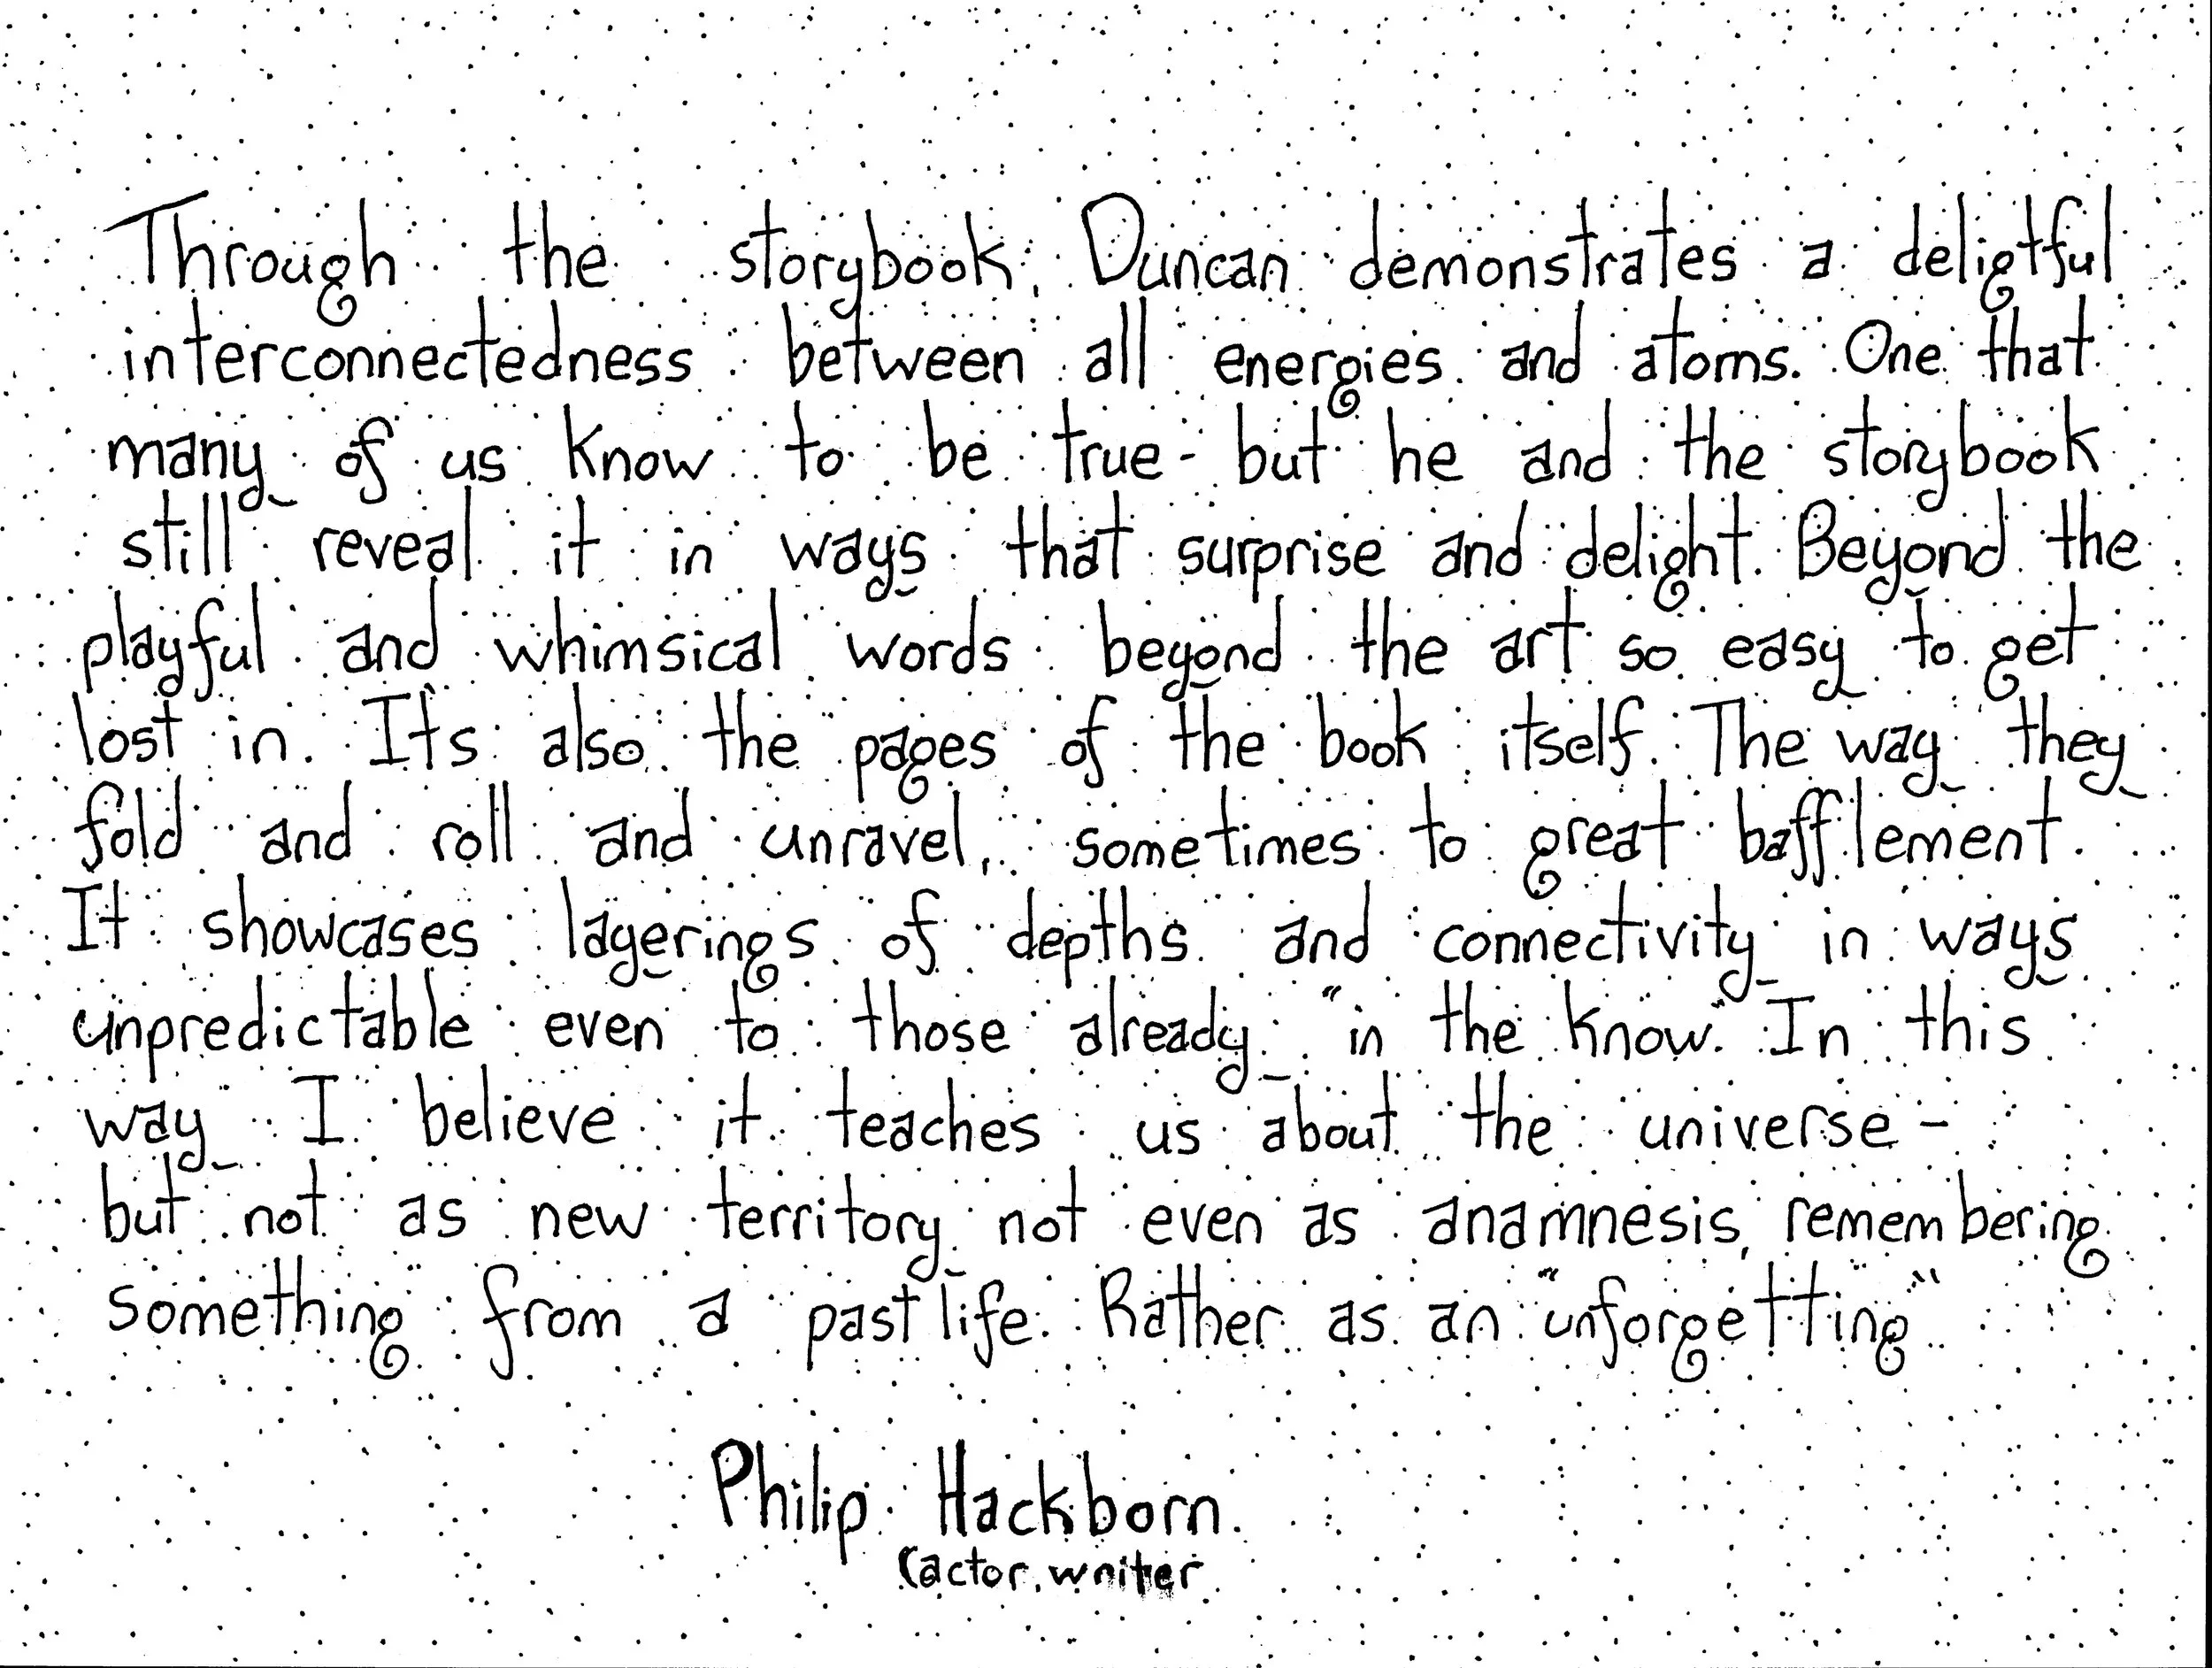 Through the storybook, Duncan demonstrates a deligtful
interconnectedness between all energies and atoms. One that
many of us know to be true - but he and the storybook
still reveal it in ways that surprise and delight. Beyond the
playful and whimsical words beyond the art so easy to get
lost in. It's also the pages of the book itself. The way they
fold and roll and unravel, sometimes to great bafflement.
It showcases layerings of depths and connectivity in ways
unpredictable even to those already "in the know." In this
way I believe it teaches us about the universe -
but not as new territory not even as anamnesis, remembering
something from a past life. Rather as an "unforgetting"
Philip Hackborn
(actor, writer